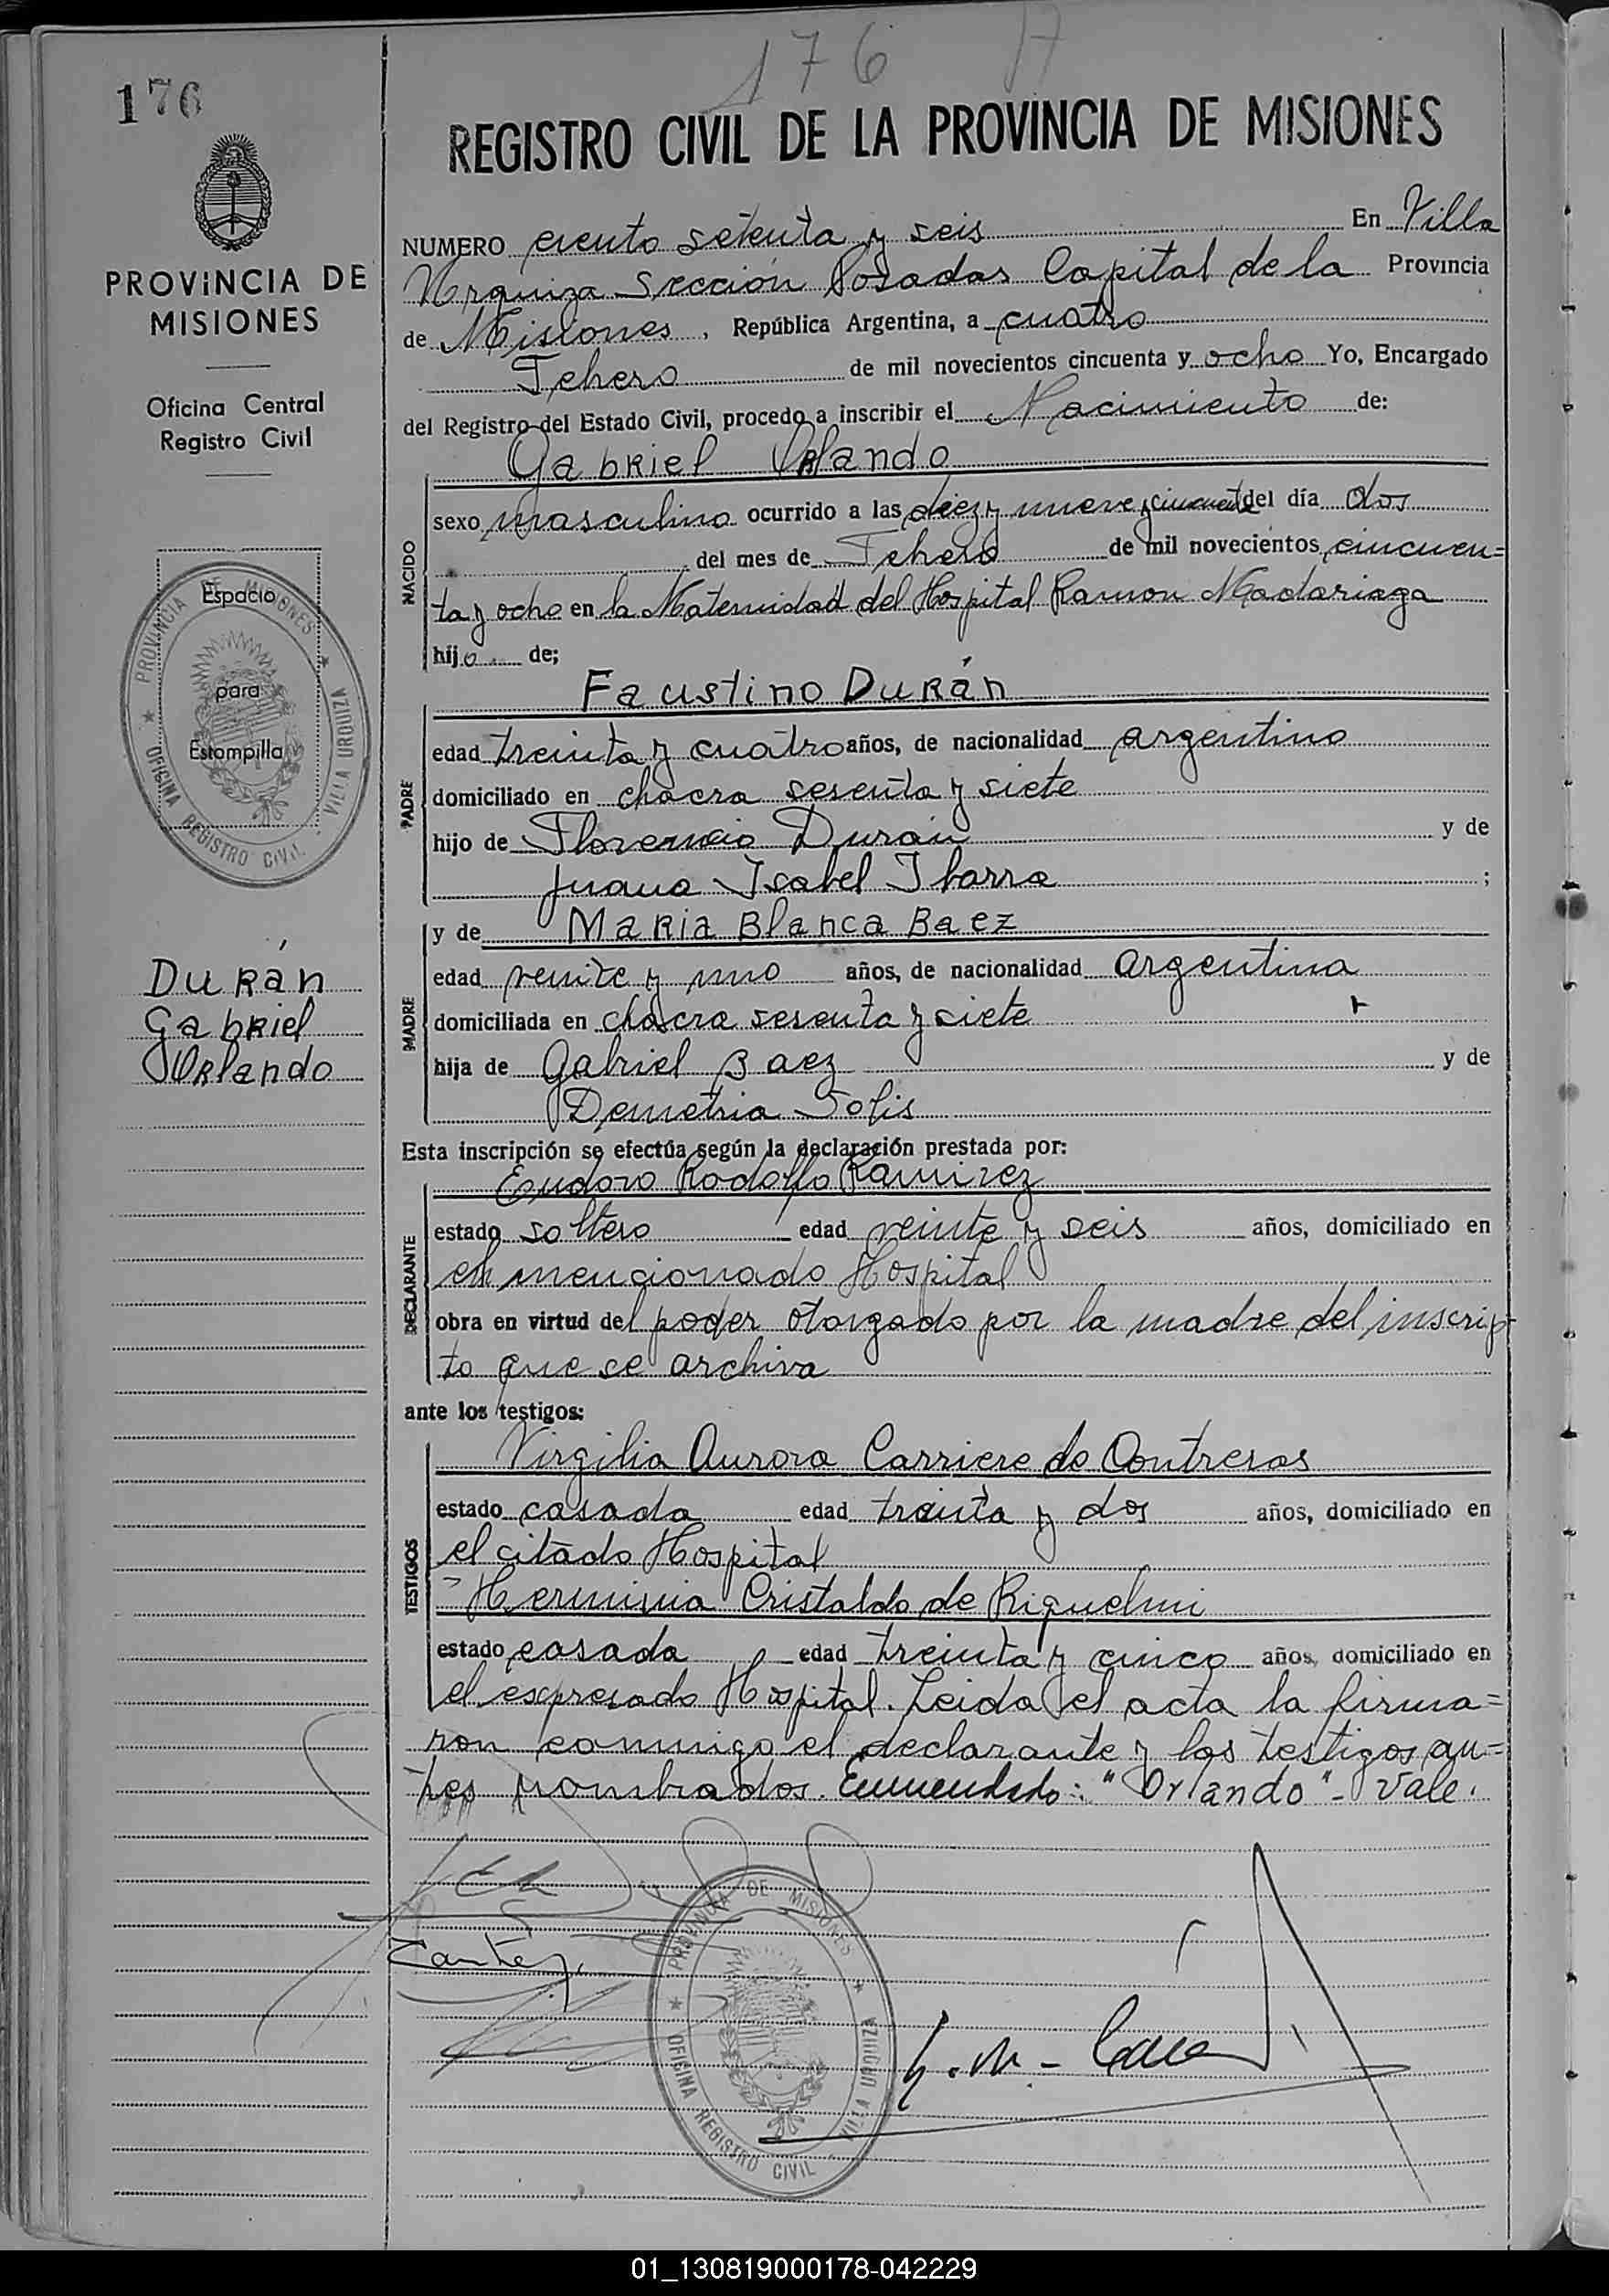 176 A
176
REGISTRO CIVIL DE LA PROVINCIA DE MISIONES
PROVINCIA DE
MISIONES
Oficina Central
Registro Civil
Espacio
para
Estompilla
PROVINCIA DE MISIONES
OFICINA REGISTRO CIVIL - VILLA URQUIZA
Durán
Gabriel
Orlando
NUMERO ciento setenta y seis En Villa
Urquiza Sección Posadas Capital de la Provincia
de Misiones, República Argentina, a cuatro
Febero de mil novecientos cincuenta y ocho Yo, Encargado
del Registro del Estado Civil, procedo a inscribir el Nacimiento de:
Gabriel Orlando
NACIDO
sexo masculino ocurrido a las diez y nueve y cincuenta del día dos
del mes de Febero de mil novecientos cincuen=
ta y ocho en la Maternidad del Hospital Ramon Madariaga
hijo de;
Faustino Durán
PADRE
edad treinta y cuatro años, de nacionalidad argentino
domiciliado en chacra sesenta y siete
hijo de Florencio Durán y de
Juana Isabel Ibarra ;
y de Maria Blanca Baez
MADRE
edad veinte y uno años, de nacionalidad argentina
domiciliada en chacra sesenta y siete
hija de Gabriel Baez y de
Demetria Solis
Esta inscripción se efectúa según la declaración prestada por:
Eudoro Rodolfo Ramirez
DECLARANTE
estado soltero edad veinte y seis años, domiciliado en
el mencionado Hospital
obra en virtud del poder otorgado por la madre del inscrip-
to que se archiva
ante los testigos:
Virgilia Aurora Carriere de Contreras
TESTIGOS
estado casada edad treinta y dos años, domiciliado en
el citado Hospital
Herminia Cristaldo de Riquelmi
estado casada edad treinta y cinco años, domiciliado en
el expresado Hospital. Leida el acta la firma=
ron conmigo el declarante y los testigos an=
tes nombrados. Enmendado: "Orlando" - Vale.
PROVINCIA DE MISIONES
OFICINA REGISTRO CIVIL - VILLA URQUIZA
01_130819000178-042229